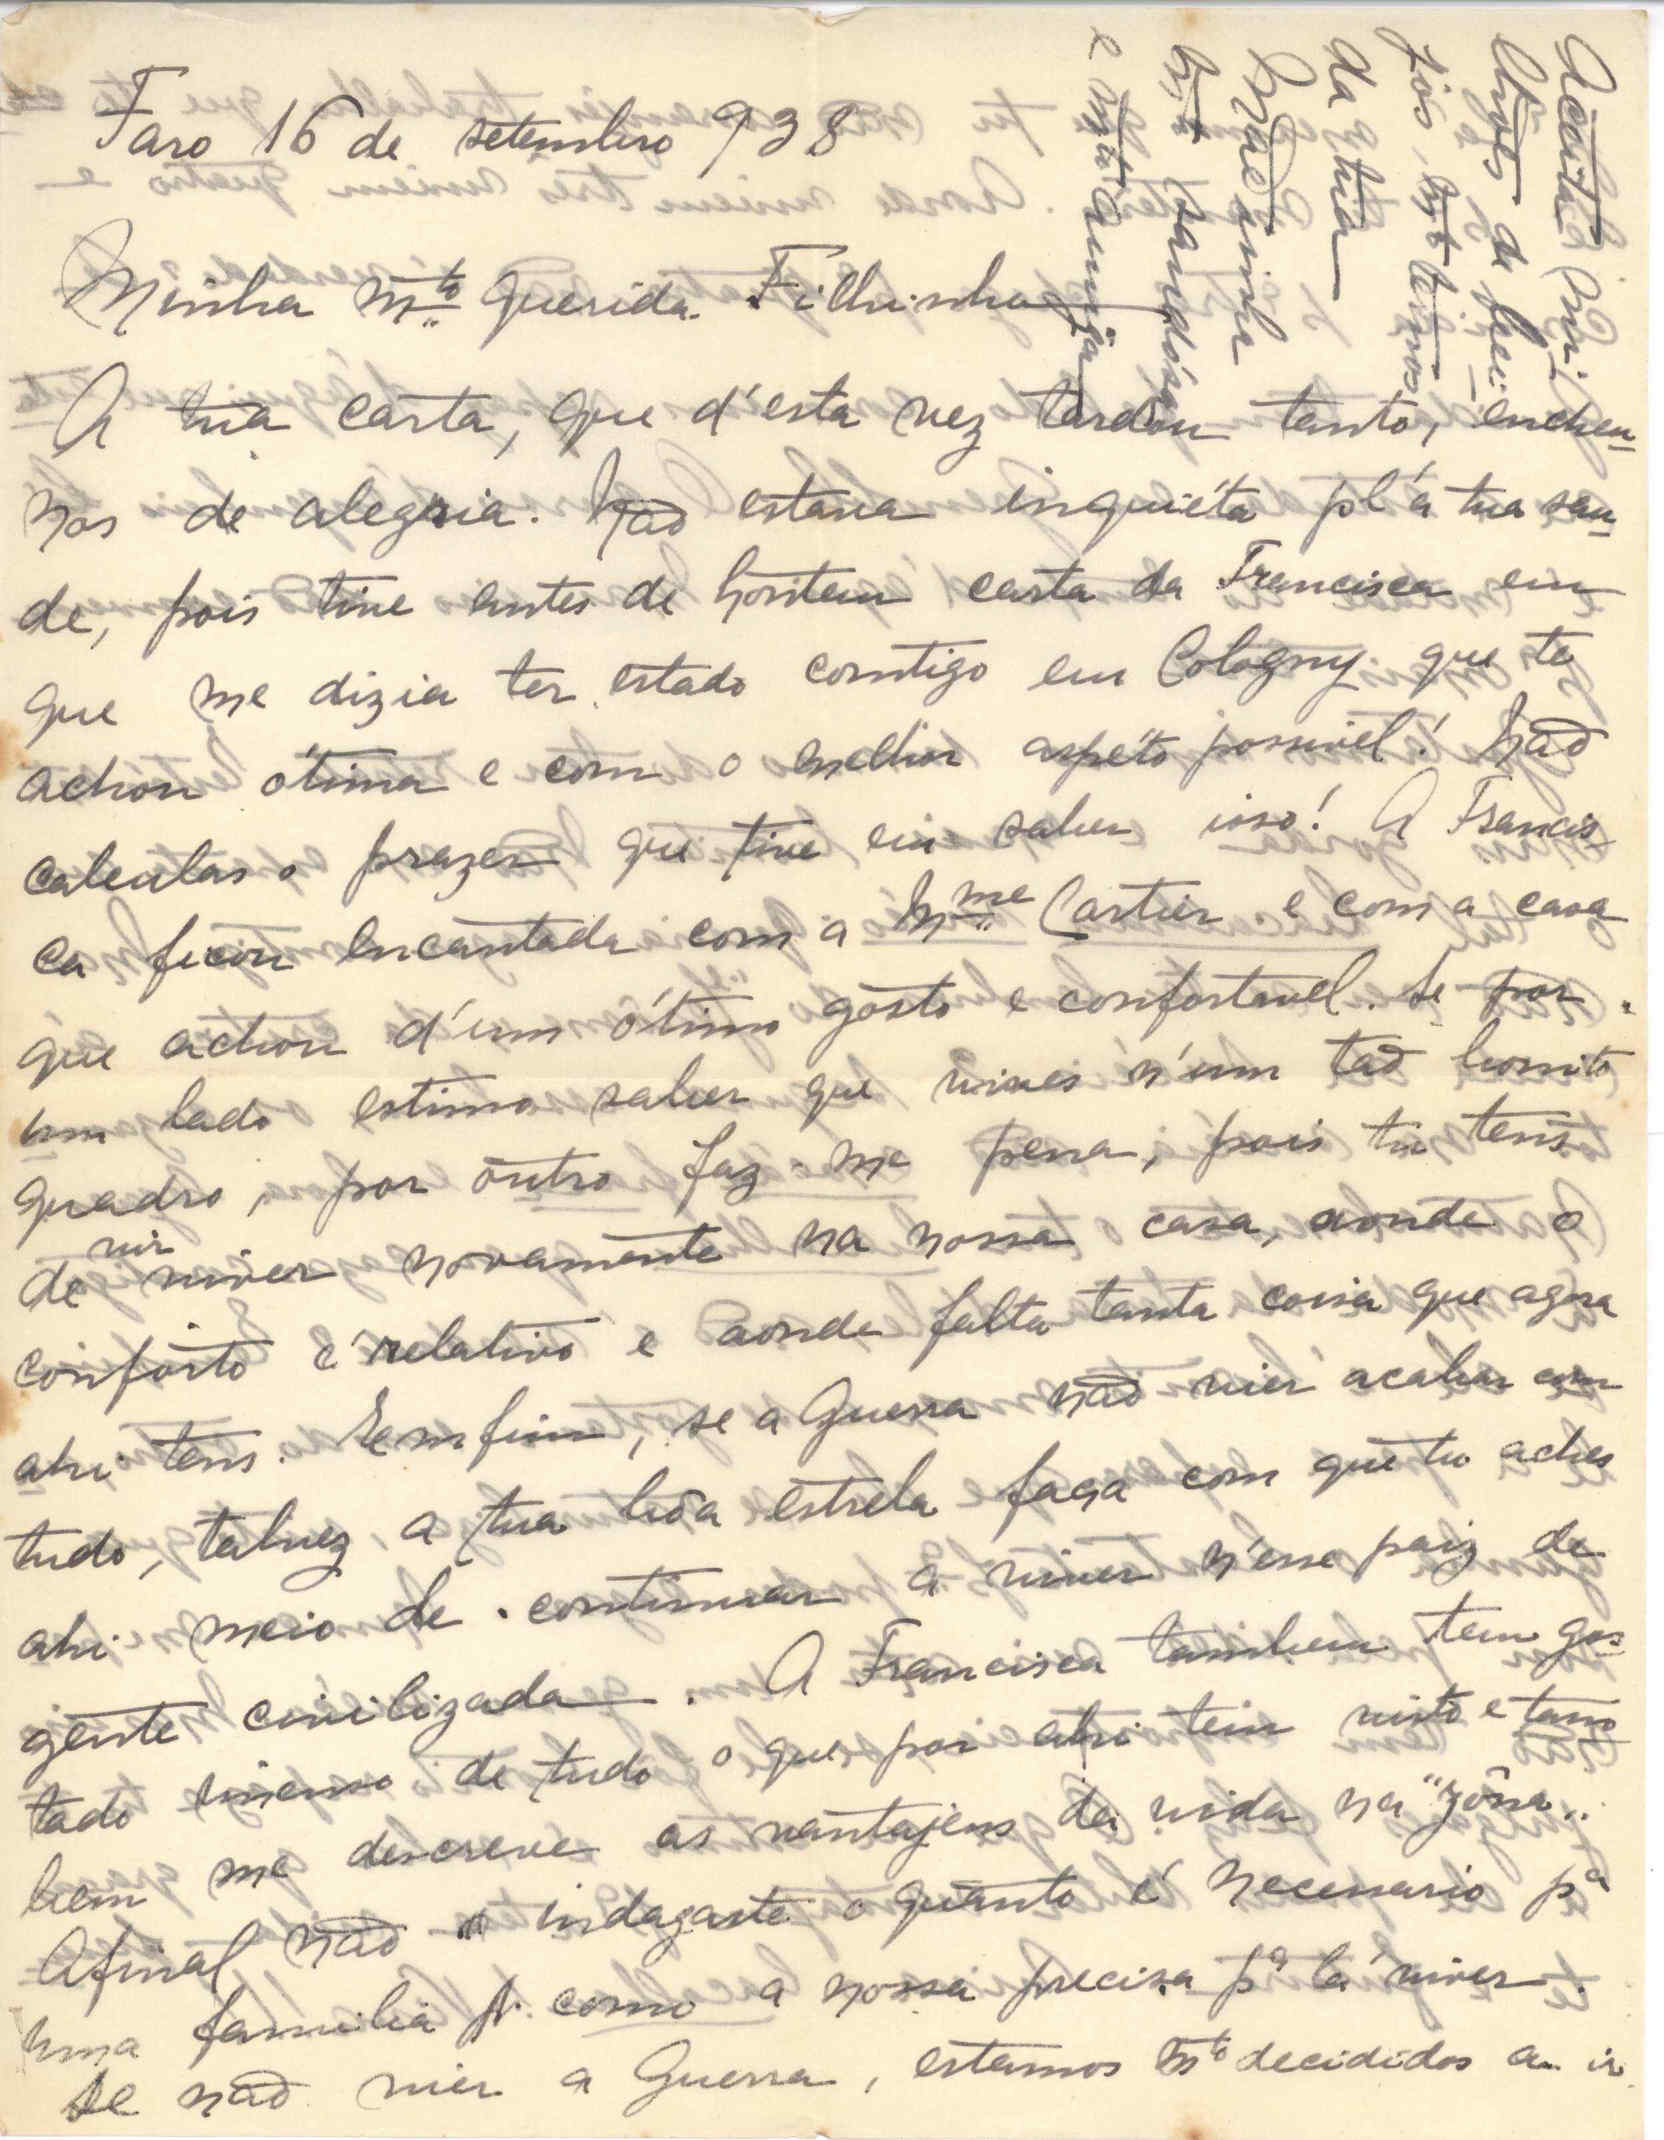 Faro 16 de setembro 938
Minha mto querida Filhinha
A tua carta, que d'esta vez tardou tanto, encheu-
nos de alegria. Não estava inquiéta pl'a tua sau-
de, pois tive antes de hontem carta da Francisca em
que me dizia ter estado comtigo em Cologny que te
achou ótima e com o melhor aspéto possivel! Não
calculas o prazer que tive em saber isso! A Francis-
ca ficou encantada com a Mme Cartier e com a casa
que achou d'um ótimo gosto e confortavel. Se por
um lado estimo saber que vives n'um tão bonito
quadro, por outro faz-me pena, pois tu tens
de vir viver novamente na nossa casa, aonde o
conforto é relativo e aonde falta tanta coisa que agora
ahi tens. Emfim, se a Guerra não vier acabar com
tudo, talvez a tua bôa estrela faça com que tu aches
ahi meio de continuar a viver n'esse paiz de
gente civilizada. A Francisca tambem tem gos-
tado imenso de tudo o que por ahi tem visto e tam-
bem me descreve as vantajens da vida na "zôna"
Afinal não indagaste o quanto é necessario pa
uma familia como a nossa precisa pa lá viver.
Se não vier a Guerra, estamos mto decididos a ir
Aceita mil
de feli-
da tua
Mãesinha
mto saudósa
e mto amiga